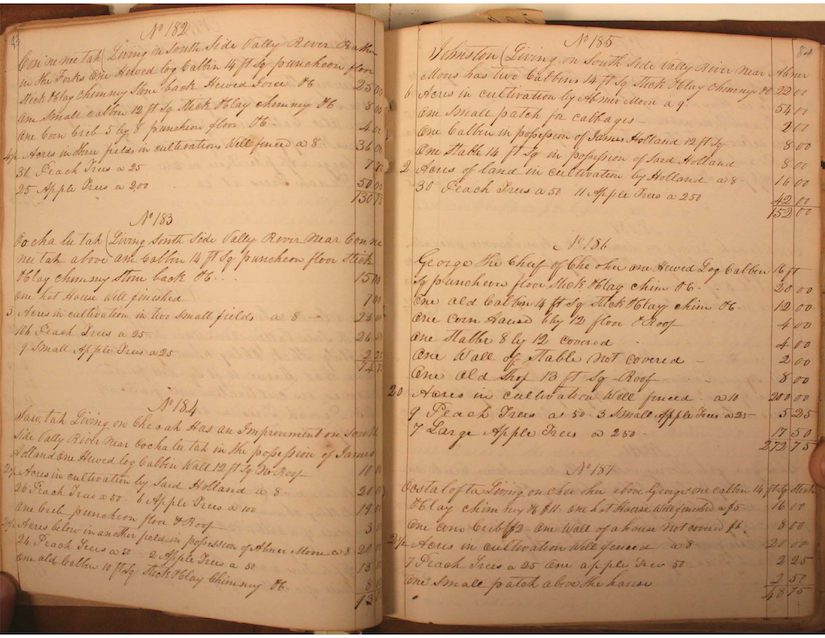 No 182
Living on South Side Vally River
in the Forks One Hewed log Cabbin 14 ft Sq puncheon floor
Stick & Clay chimny Stone back 25 00
One Small cabbin 12 ft Sq Stick & Clay chimny &c 8 00
One Corn Crib 5 by 8 puncheon floor &c 4 00
4½ Acres in three fields in cultivation Well fenced a 8 36 00
31 Peach Trees a 25 7
25 Apple Trees a 200 50 00
130
No 183
Cochalutah (Living South Side Vally River Near
above One Cabbin 14 ft Sq puncheon floor Stick
& Clay chimny Stone back &c 15 00
One hot House Well finished
3 Acres in cultivation in two small fields a 8 24 00
Peach Trees a 25
9 Small Apple Trees a 25 2 25
74
No 184
Living on Has an Improvment on South
Side Vally River Near Cochalutah in the possession of James
Holland One Hewed log Cabbin Wall 12 ft Sq No Roof 10 00
2½ Acres in cultivation by Said Holland a 8 20 00
26 Peach Trees a 50 6 Apple Trees a 100 19 00
One Crib puncheon floor & Roof
2½ Acres below in another field in possession of Abner Moore a 8 20
Peach Trees a 50 2 Apple Trees a 50 13
One old Cabbin 10 ft Sq Stick & Clay Chimney &c 8
No 185
84
Johnston (Living on South Side Vally River Near Abner
has two Cabbins 14 ft Sq Stick & Clay chimny &c 22 00
6 Acres in cultivation by Abner a 9 54 00
One Small patch for cabbages 2 00
One Cabbin in possession of James Holland 12 ft Sq 8 00
One Stable 14 ft Sq in possession of Said Holland 8 00
2 Acres of land in cultivation by Holland a 8 16 00
30 Peach Trees a 50 11 Apple Trees a 250 42 00
152 00
No 186
George the Chief of one Hewed Log Cabbin 16 ft
Sq puncheon floor Stick & Clay chim &c 20 00
One old Cabbin 14 ft Sq Stick & Clay chim &c 12 00
One Corn House by 12 floor & Roof 4 00
One Stable 8 by 12 covered 4 00
One Wall of Stable Not covered 2 00
One old Shop 13 ft Sq Roof 8 00
20 Acres in cultivation Well fenced a 10 200 00
9 Peach Trees a 50 3 Small Apple Trees a 25 5 25
7 Large Apple Trees a 250 17 50
272 75
No 187
Living on above George one cabbin 14 ft Sq Stick
& Clay chimny one hot House Well finished a \$5 16 00
One Wall of a house Not covered 8 00
2½ Acres in cultivation Well fenced a 8 20 00
7 Peach Trees a 25 One apple Tree 50 2 25
One Small patch above the house 2 50
48 75